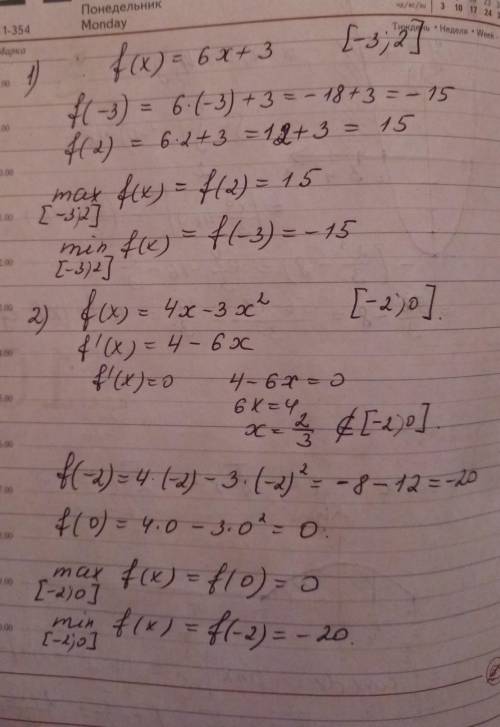 Понедельник
1-354 Monday
3 10 17 24
Тиждень • Неделя • Week
1) f(x) = 6x + 3 [-3; 2]
f(-3) = 6·(-3) + 3 = -18 + 3 = -15
f(2) = 6·2 + 3 = 12 + 3 = 15
max f(x) = f(2) = 15
[-3;2]
min f(x) = f(-3) = -15
[-3;2]
2) f(x) = 4x - 3x² [-2;0].
f'(x) = 4 - 6x
f'(x)=0 4 - 6x = 0
6x = 4
x = 2/3 ⊄ [-2;0].
f(-2) = 4·(-2) - 3·(-2)² = -8 - 12 = -20
f(0) = 4·0 - 3·0² = 0.
max f(x) = f(0) = 0
[-2;0]
min f(x) = f(-2) = -20.
[-2;0]